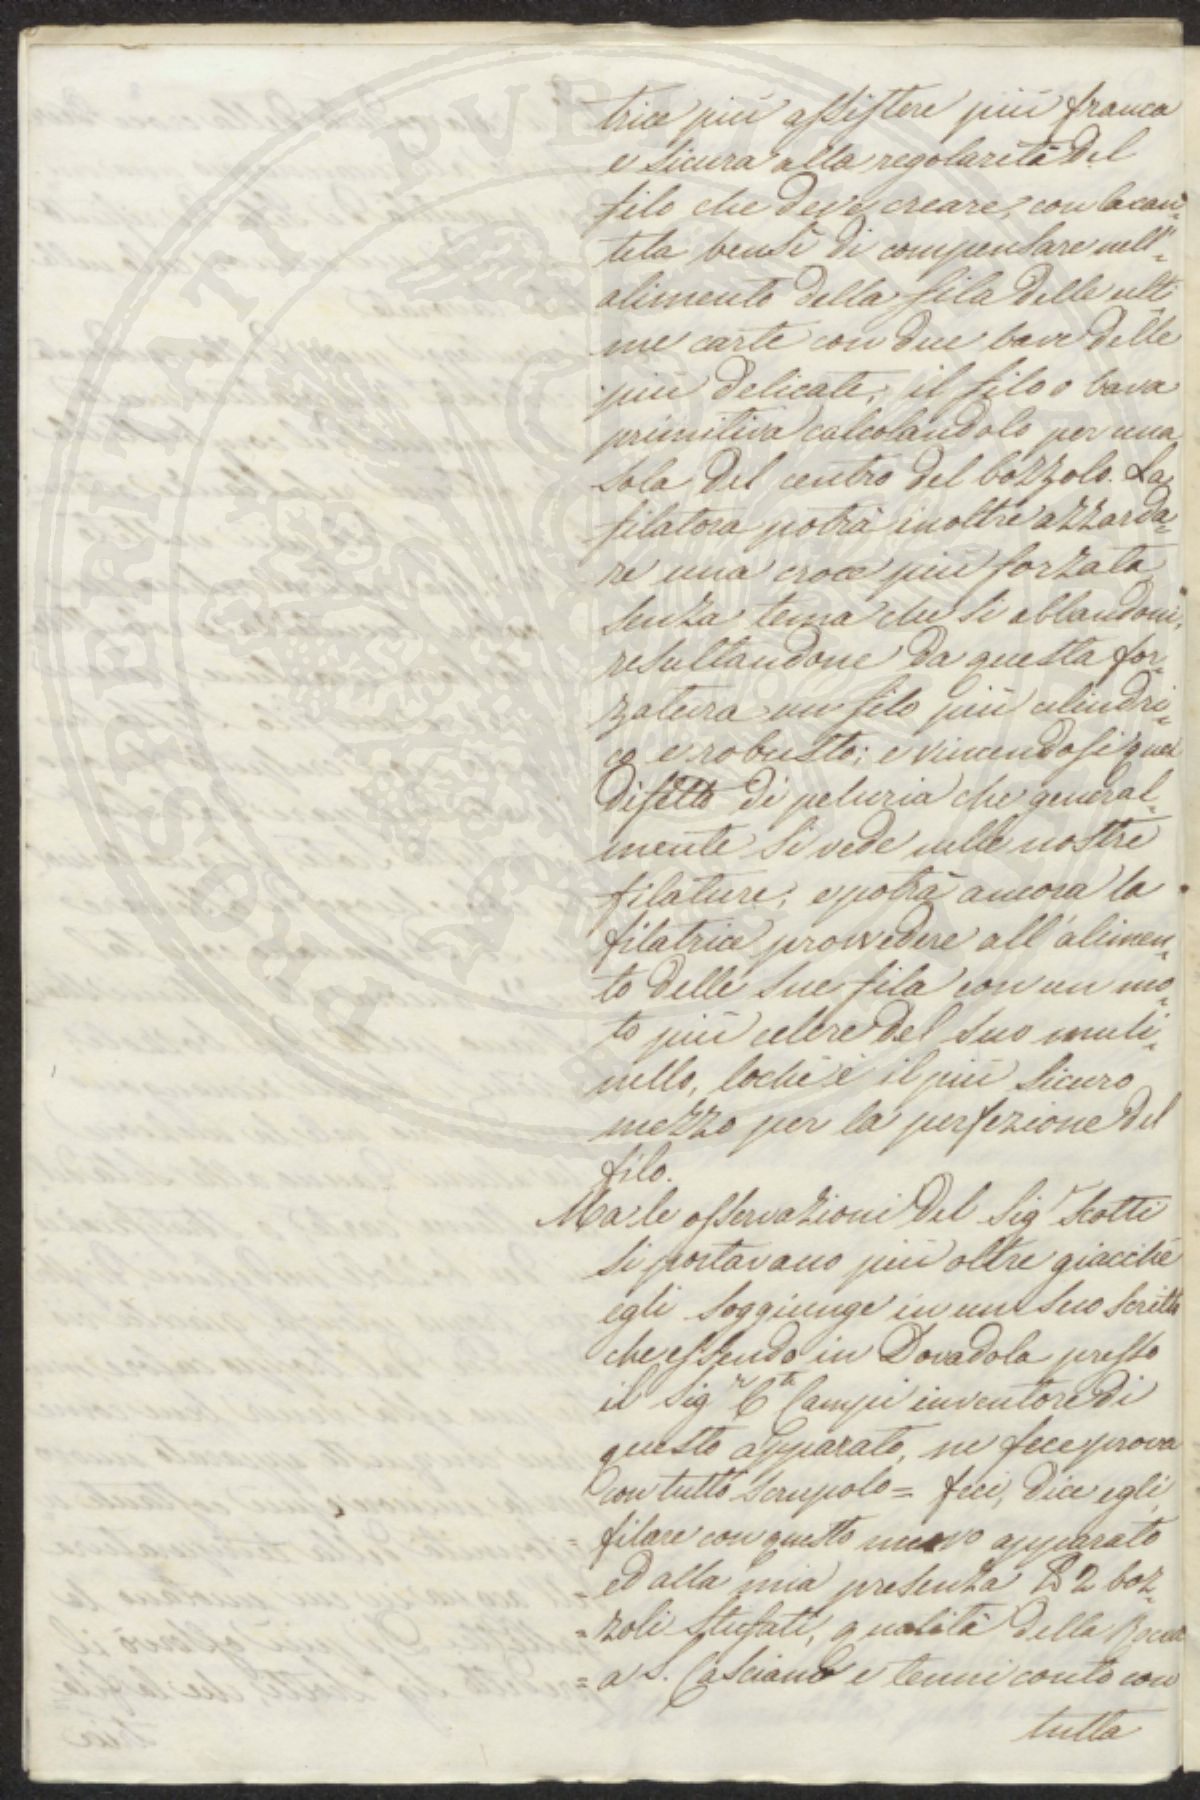 trice più assistere più franca
e sicura alla regolarità del
filo che deve creare, con la cau=
tela bensì di compensare nell'=
alimento della fila delle ulti=
me carte con due bave delle
più delicate, il filo o bava
primitiva calcolandolo per una
sola del centro del bozzolo. La
filatora potrà inoltre azzarda=
re una croce più forzata
senza tema che si abbandoni,
resultandone da questa for=
zatura un filo più cilindri=
co e robusto; e vincendosi quel
difetto di peluria che general=
mente si vede nelle nostre
filature; e potrà ancora la
filatrice provvedere all'alimen=
to delle sue fila con un mo=
to più celere del suo muli=
nello, lochè è il più sicuro
mezzo per la perfezione del
filo.
Ma le osservazioni del Sigr Scotti
si portavano più oltre giacchè
egli soggiunge in un suo scritto
che essendo in Dovadola presso
il Sigr Cte Campi inventore di
questo apparato, ne fece prova
con tutto scrupolo = feci, dice egli,
= filare con questo nuovo apparato
= ed alla mia presenza 2 boz=
= zoli stufati, qualità della Rocca
= a S. Casciano e tenni conto con
tutta
PROSPERITATI PVBLICAE